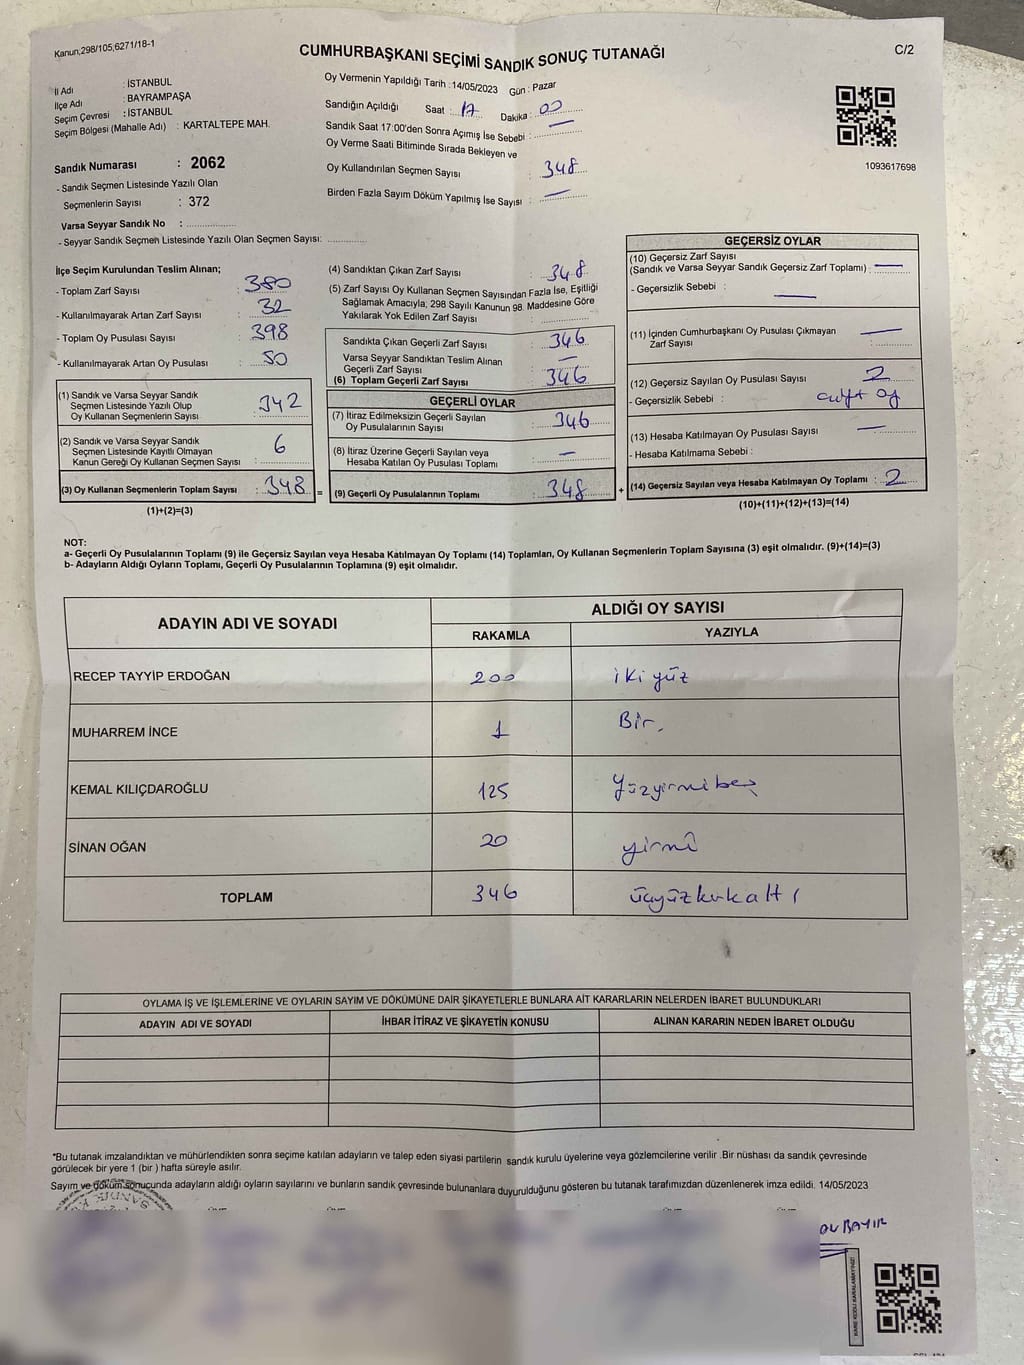 Kanun,298/105,6271/18-1
CUMHURBAŞKANI SEÇİMİ SANDIK SONUÇ TUTANAĞI
C/2
İl Adı : İSTANBUL
İlçe Adı : BAYRAMPAŞA
Seçim Çevresi : İSTANBUL
Seçim Bölgesi (Mahalle Adı) : KARTALTEPE MAH.
Sandık Numarası : 2062
- Sandık Seçmen Listesinde Yazılı Olan
Seçmenlerin Sayısı : 372
Varsa Seyyar Sandık No :
- Seyyar Sandık Seçmen Listesinde Yazılı Olan Seçmen Sayısı:
Oy Vermenin Yapıldığı Tarih : 14/05/2023 Gün : Pazar
Sandığın Açıldığı Saat : 17 Dakika : 00
Sandık Saat 17:00'den Sonra Açımış İse Sebebi : —
Oy Verme Saati Bitiminde Sırada Bekleyen ve
Oy Kullandırılan Seçmen Sayısı : 348
Birden Fazla Sayım Döküm Yapılmış İse Sayısı : —
1093617698
İlçe Seçim Kurulundan Teslim Alınan;
- Toplam Zarf Sayısı : 380
- Kullanılmayarak Artan Zarf Sayısı : 32
- Toplam Oy Pusulası Sayısı : 398
- Kullanılmayarak Artan Oy Pusulası : 50
(1) Sandık ve Varsa Seyyar Sandık
Seçmen Listesinde Yazılı Olup
Oy Kullanan Seçmenlerin Sayısı : 342
(2) Sandık ve Varsa Seyyar Sandık
Seçmen Listesinde Kayıtlı Olmayan
Kanun Gereği Oy Kullanan Seçmen Sayısı : 6
(3) Oy Kullanan Seçmenlerin Toplam Sayısı : 348 =
(1)+(2)=(3)
(4) Sandıktan Çıkan Zarf Sayısı : 348
(5) Zarf Sayısı Oy Kullanan Seçmen Sayısından Fazla İse, Eşitliği
Sağlamak Amacıyla; 298 Sayılı Kanunun 98. Maddesine Göre
Yakılarak Yok Edilen Zarf Sayısı :
Sandıkta Çıkan Geçerli Zarf Sayısı : 346
Varsa Seyyar Sandıktan Teslim Alınan
Geçerli Zarf Sayısı : —
(6) Toplam Geçerli Zarf Sayısı : 346
GEÇERLİ OYLAR
(7) İtiraz Edilmeksizin Geçerli Sayılan
Oy Pusulalarının Sayısı : 346
(8) İtiraz Üzerine Geçerli Sayılan veya
Hesaba Katılan Oy Pusulası Toplamı : —
(9) Geçerli Oy Pusulalarının Toplamı : 348 +
GEÇERSİZ OYLAR
(10) Geçersiz Zarf Sayısı
(Sandık ve Varsa Seyyar Sandık Geçersiz Zarf Toplamı) : —
- Geçersizlik Sebebi : —
(11) İçinden Cumhurbaşkanı Oy Pusulası Çıkmayan
Zarf Sayısı : —
(12) Geçersiz Sayılan Oy Pusulası Sayısı : 2
- Geçersizlik Sebebi : çift oy
(13) Hesaba Katılmayan Oy Pusulası Sayısı : —
- Hesaba Katılmama Sebebi :
(14) Geçersiz Sayılan veya Hesaba Katılmayan Oy Toplamı : 2
(10)+(11)+(12)+(13)=(14)
NOT:
a- Geçerli Oy Pusulalarının Toplamı (9) ile Geçersiz Sayılan veya Hesaba Katılmayan Oy Toplamı (14) Toplamları, Oy Kullanan Seçmenlerin Toplam Sayısına (3) eşit olmalıdır. (9)+(14)=(3)
b- Adayların Aldığı Oyların Toplamı, Geçerli Oy Pusulalarının Toplamına (9) eşit olmalıdır.
ADAYIN ADI VE SOYADI
ALDIĞI OY SAYISI
RAKAMLA YAZIYLA
RECEP TAYYİP ERDOĞAN 200 iki yüz
MUHARREM İNCE 1 Bir.
KEMAL KILIÇDAROĞLU 125 Yüzyirmibeş
SİNAN OĞAN 20 yirmi
TOPLAM 346 üçyüzkırkaltı
OYLAMA İŞ VE İŞLEMLERİNE VE OYLARIN SAYIM VE DÖKÜMÜNE DAİR ŞİKAYETLERLE BUNLARA AİT KARARLARIN NELERDEN İBARET BULUNDUKLARI
ADAYIN ADI VE SOYADI İHBAR İTİRAZ VE ŞİKAYETİN KONUSU ALINAN KARARIN NEDEN İBARET OLDUĞU
*Bu tutanak imzalandıktan ve mühürlendikten sonra seçime katılan adayların ve talep eden siyasi partilerin sandık kurulu üyelerine veya gözlemcilerine verilir .Bir nüshası da sandık çevresinde
görülecek bir yere 1 (bir ) hafta süreyle asılır.
Sayım ve döküm sonucunda adayların aldığı oyların sayılarını ve bunların sandık çevresinde bulunanlara duyurulduğunu gösteren bu tutanak tarafımızdan düzenlenerek imza edildi. 14/05/2023
BAYIR